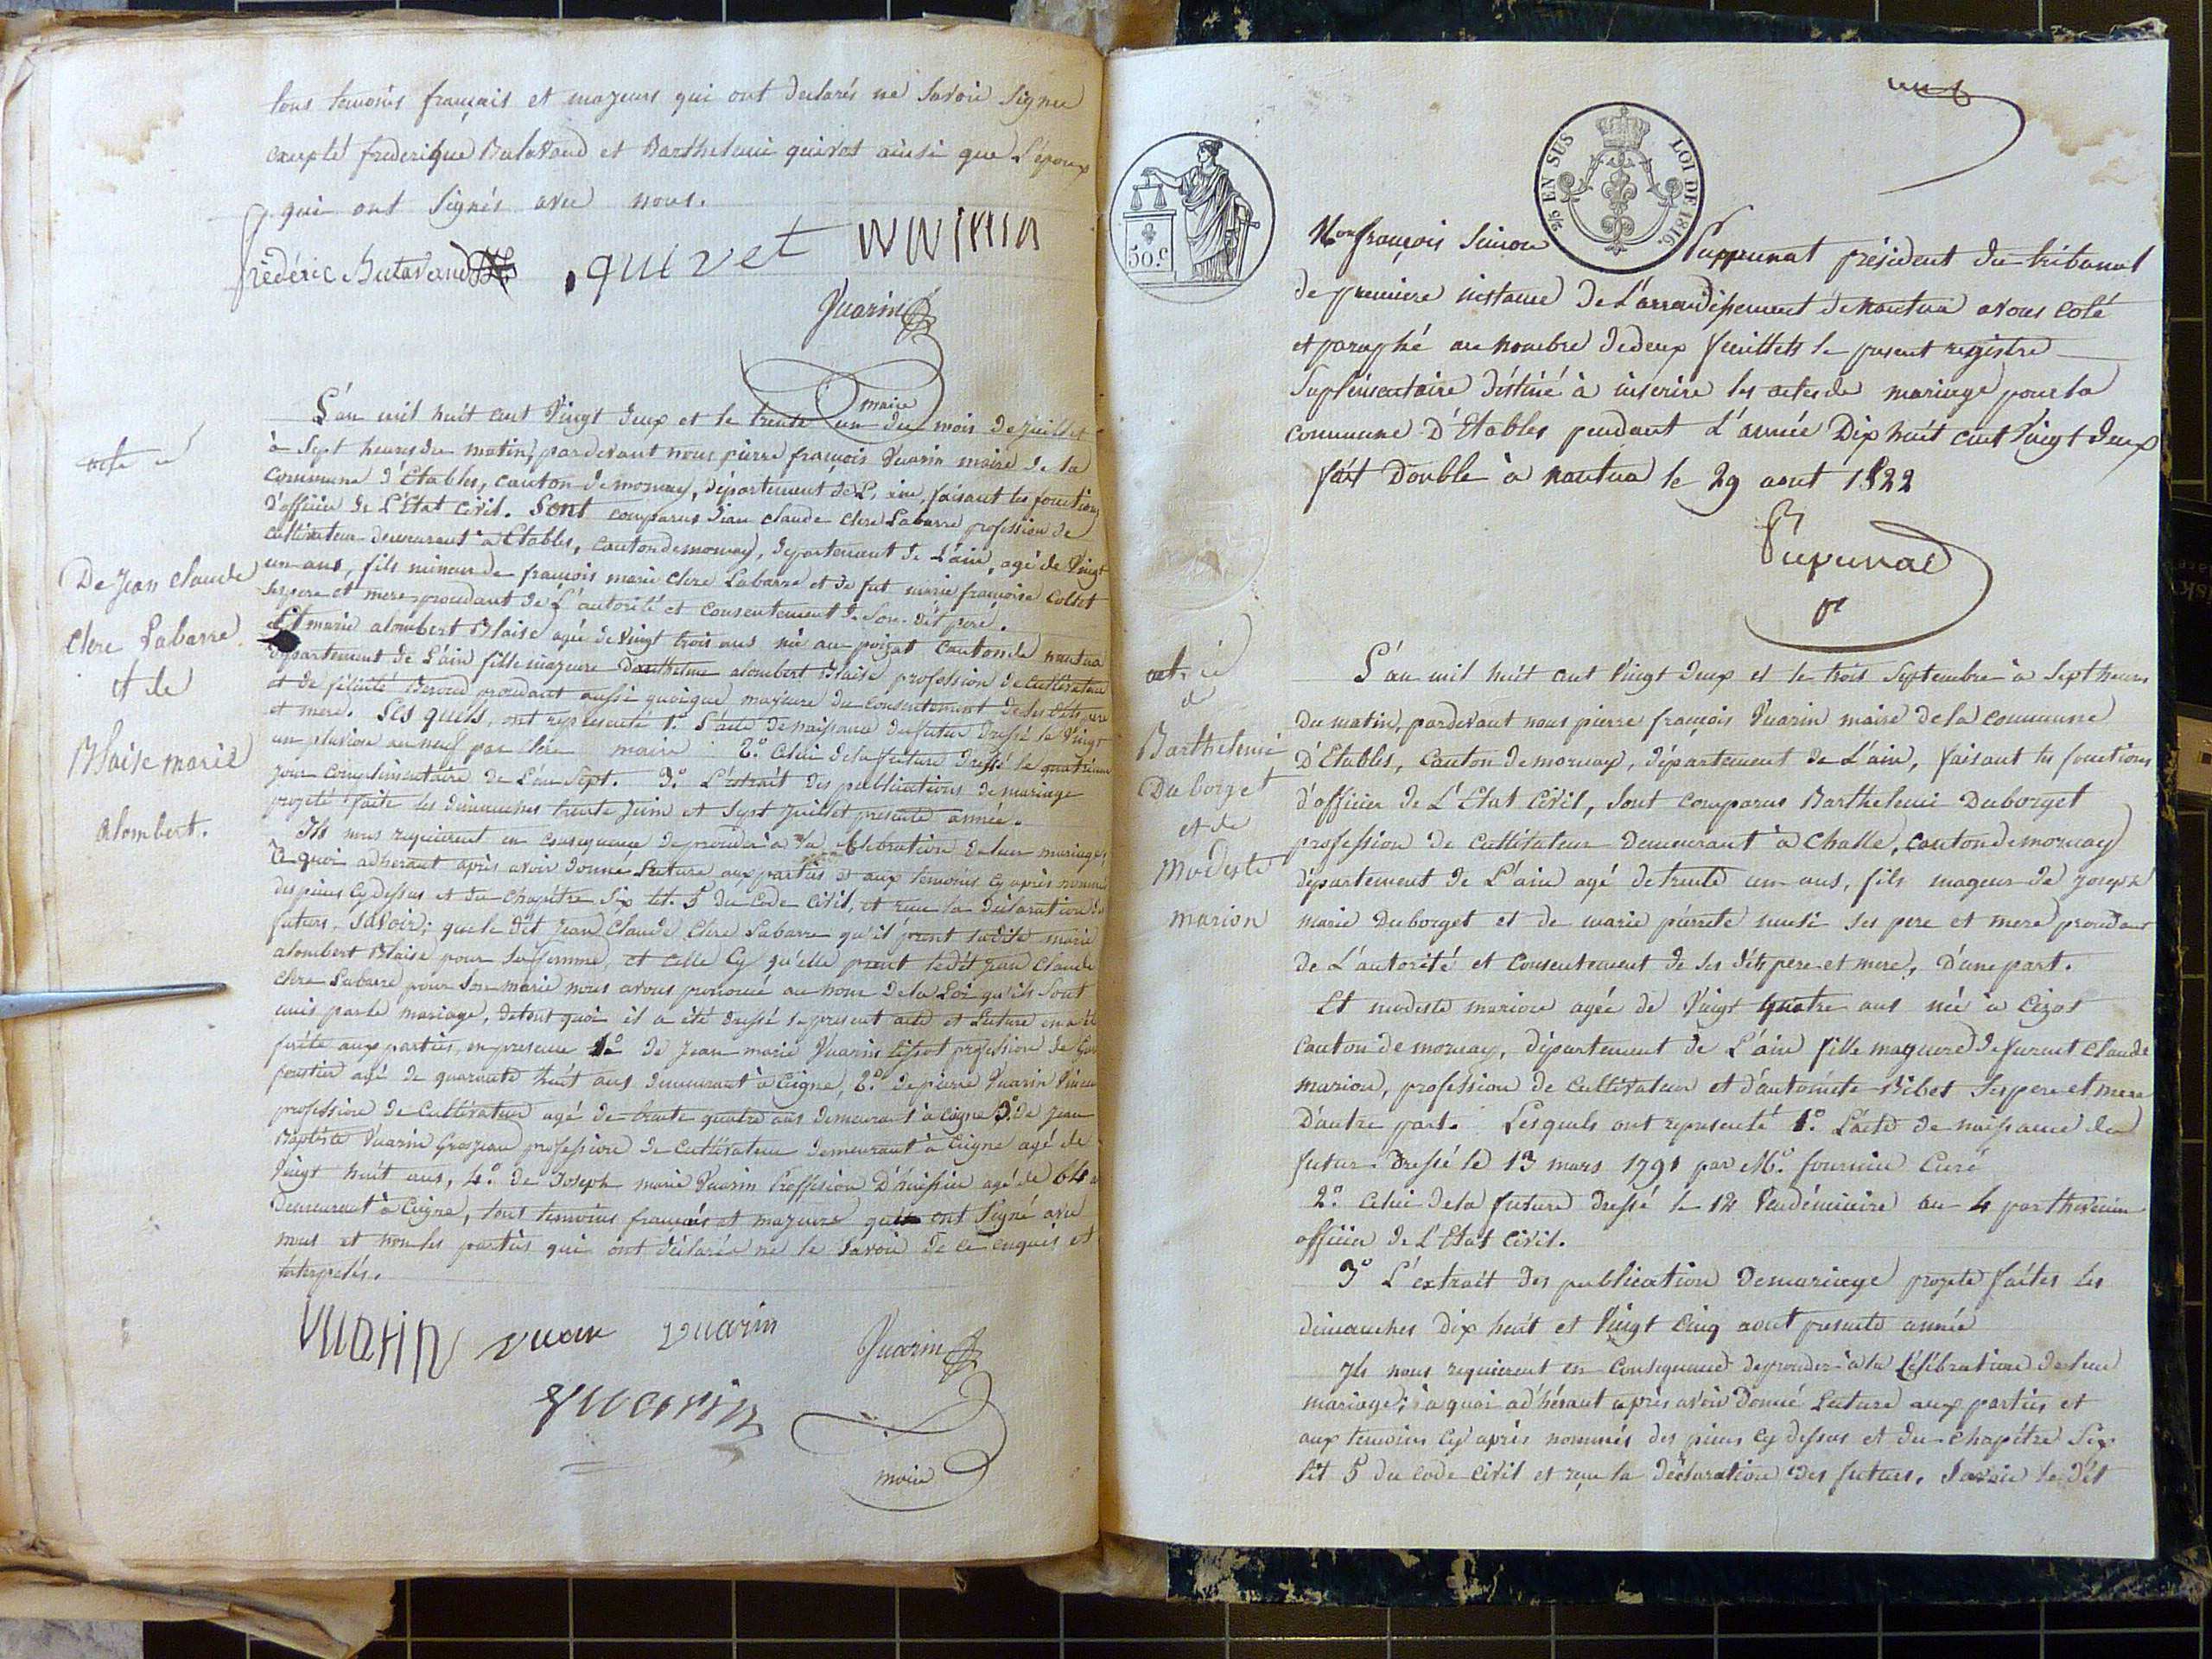 tous temoins français et majeurs qui ont declarés ne savoir signer
excepté frederique Butavand et Barthelemi quivet ainsi que L'époux
qui ont signés avec nous.
frédéric Butavand quivet
Vuarin
maire
L'an mil huit cent Vingt deux et le trente un du mois de juillet
à Sept heures du matin, pardevant nous pierre françois Vuarin maire de la
commune d'Etables, canton de mornay, département de L'ain, faisant les fonctions
d'officier de L'Etat civil. Sont comparus Jean claude clere Labarre profession de
cultivateur demeurant à Etables, canton de mornay, departement de L'ain, agé de Vingt
un ans, fils mineur de françois marie clere Labarre et de fut marie françoise Collet
ses pere et mere procedant de L'autorité et consentement de Son dit peré.
Et marie alombert Blaise agée de vingt trois ans née au poizat canton de nantua
departement de L'ain fille majeure D'anthelme alombert Blaise profession de cultivateur
et de félicité Beroud procedant aussi quoique majeure du consentement de ses dits pere
et mere. Les quels, ont representé 1.º L'acte de naissance du futur dressé le Vingt
un pluviose an neuf par clere maire 2.º Celui de la future dressé le quatrieme
jour complimentaire de L'an Sept. 3.º L'extrait des publications de mariage
projeté faite les dimanches trente Juin et Sept Juillet presente année.
Ils nous requierent en consequence de proceder à la Célebration de leur mariage;
à quoi adherant après avoir donné Lecture aux parties et aux temoins cy après nommés
des pieces cy dessus et du chapitre Six tit. 5 du Code Civil, et reçu la déclaration des
futurs, Savoir; que le dit Jean Claude Clere Labarre qu'il prent ladite marie
alombert Blaise pour sa femme, et celle Cy qu'elle prent ledit Jean Claude
clere Labarre pour Son marie nous avons prononcé au nom de la Loi qu'ils Sont
unis par le mariage, de tout quoi il a été dressé le present acte et Lecture en a été
faite aux parties, en presence 1.º de Jean marie Vuarin profession de
forestier agé de quarante huit ans demeurant à Ceigne, 2.º de pierre Vuarin
profession de Cultivateur agé de trente quatre ans demeurant à Ceigne 3.º de Jean
Baptiste Vuarin Grosjean profession de cultivateur demeurant à Ceigne agé de
Vingt huit ans, 4.º de Joseph marie Vuarin Proffesion D'huissier agé de 64
demeurant à Ceigne, tout temoins français et majeurs qui ont signé avec
nous et non les parties qui ont déclarés ne le savoir de ce enquis et
interpelés.
vuarin vuar vuarin Vuarin
vuarin
maire
acte
De Jean claude
Clere Labarre
et de
Blaise marie
Alombert.
50.C
2/5 EN SUS LOI DE 1816.
Nous françois Simon Puppunat président du tribunal
de premiere instance de L'arrondissement de Nantua avons coté
et paraphé au nombre de deux feuillets le present registre
Suplémentaire déstiné à inscrire les actes de mariage pour la
commune D'Etables pendant L'année Dix huit cent Vingt deux
fait Double à Nantua le 29 aout 1822
L'an mil huit cent Vingt deux et le trois Septembre à Sept heures
du matin, pardevant nous pierre françois Vuarin maire de la commune
D'Etables, Canton de mornay, département de L'ain, faisant les fonctions
d'officier de L'Etat Civil, Sont comparus Barthelemi Duborget
profession de Cultivateur demeurant à Challe, canton de mornay
département de L'ain agé de trente un ans, fils mageur de joseph
marie Duborget et de marie pierrete ses pere et mere procedant
de L'autorité et Consentement de ses dits pere et mere, D'une part.
Et modeste marion agée de Vingt quatre ans née à Cizot
canton de mornay, département de L'ain fille mageure de Laurent claude
marion, profession de Cultivateur et d'antoinete Bibet ses pere et mere
D'autre part. Lesquels ont representé 1.º L'acte de naissance du
futur dressé le 13 mars 1791 par M.º fournier Curé
2.º Celui de la future dressé le 12 Vendémiaire an 4 par thevenin
officier de L'Etat Civil.
3.º L'extrait des publication de mariage projeté faites les
dimanches dix huit et Vingt cinq aout presente année
Ils nous requierent en Consequence de proceder à la Célébration de leur
mariage; à quoi adhérant après avoir donné Lecture aux parties et
aux temoins cy après nommés des pieces cy dessus et du chapitre Six
tit 5 du code civil et reçu la déclaration des futurs, Savoir le dit
de
Barthelemi
Duborget
et de
Modeste
marion